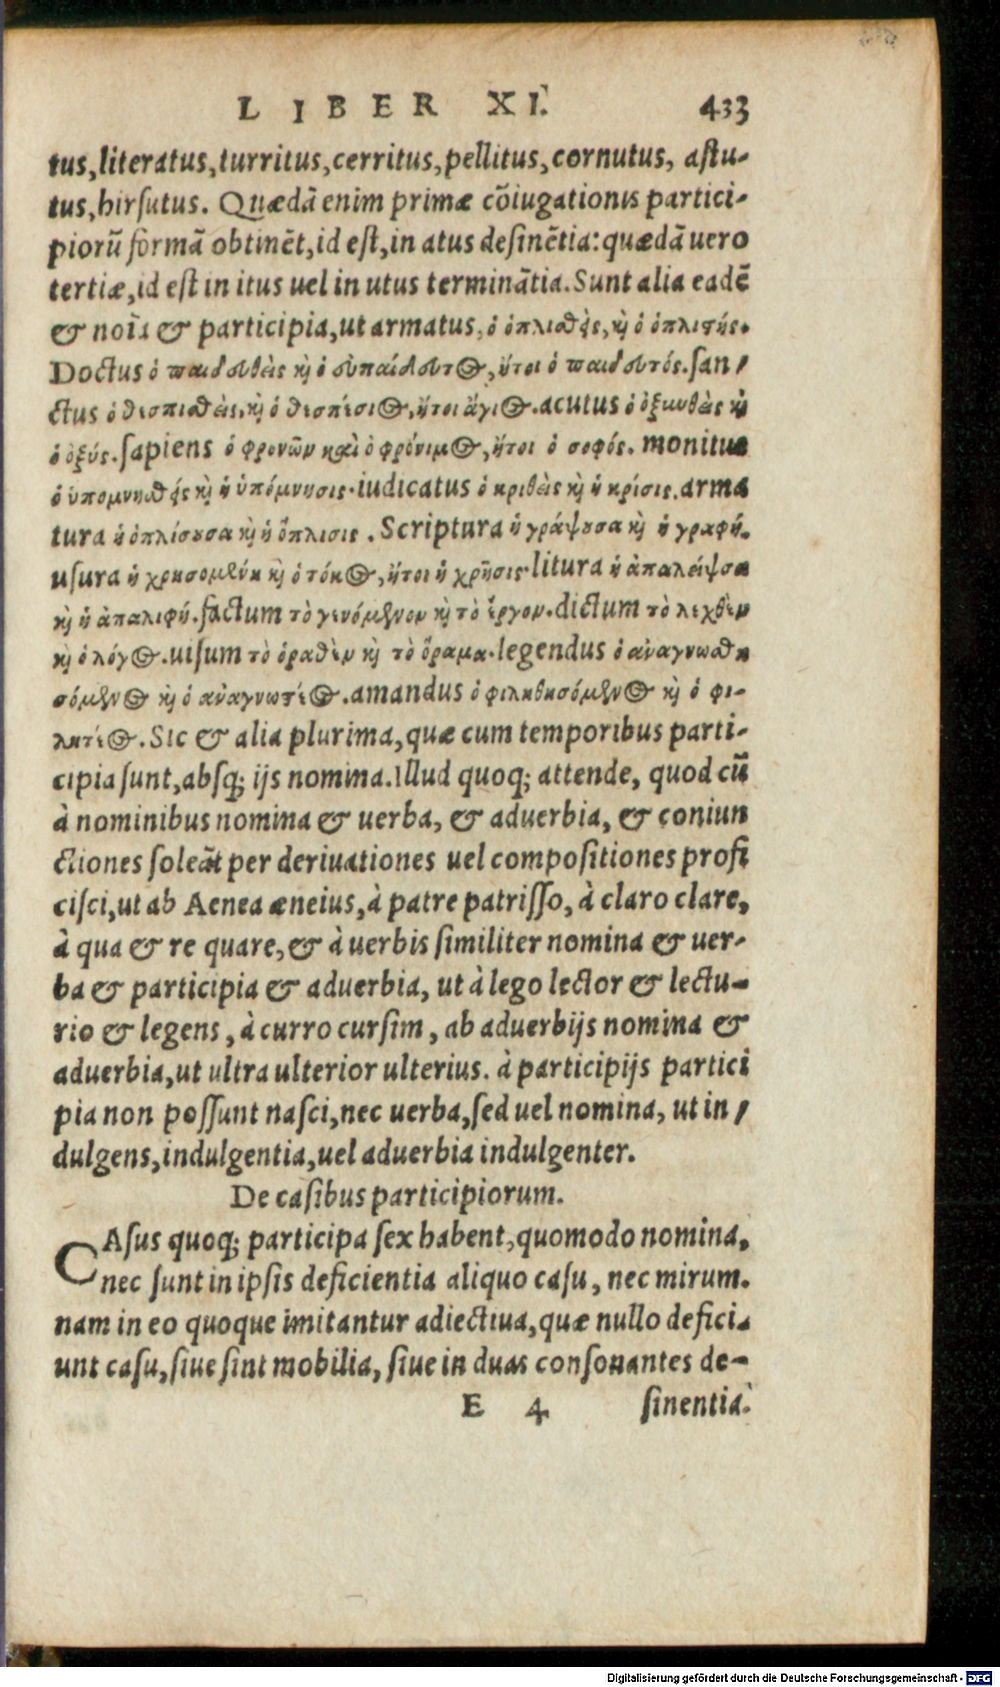 LIBER XI. 433
tus, literatus, turritus, cerritus, pellitus, cornutus, astu-
tus, hirsutus. Quædã enim primæ cõiugationis partici-
piorũ formã obtinẽt, id est, in atus desinẽtia: quædã uero
tertiæ, id est in itus uel in utus terminãtia. Sunt alia eadẽ
& noĩa & participia, ut armatus, ὁ ὁπλισθεὶς, κỳ ὁ ὁπλιστής.
Doctus ὁ παιδευθεὶς κỳ ὁ εὐπαίδευτος, ἤτοι ὁ παιδευτός. san-
ctus ὁ θεσπισθεὶς, κỳ ὁ θεσπέσιος, ἤτοι ἅγιος. acutus ὁ ὀξυνθεὶς κỳ
ὁ ὀξύς. sapiens ὁ φρονῶν καὶ ὁ φρόνιμος, ἤτοι ὁ σοφός. monitus
ὁ ὑπομνησθεὶς κỳ ἡ ὑπόμνησις. iudicatus ὁ κριθεὶς κỳ ἡ κρίσις. arma
tura ἡ ὁπλίσουσα κỳ ἡ ὅπλισις. Scriptura ἡ γράψουσα κỳ ἡ γραφή.
usura ἡ χρησομένη κỳ ὁ τόκος, ἤτοι ἡ χρῆσις. litura ἡ ἀπαλείψουσα
κỳ ἡ ἀπαλιφή. factum τὸ γενόμενον κỳ τὸ ἔργον. dictum τὸ λεχθὲν
κỳ ὁ λόγος. uisum τὸ ὁραθὲν κỳ τὸ ὅραμα. legendus ὁ ἀναγνωσθη
σόμενος κỳ ὁ ἀναγνωστέος. amandus ὁ φιληθησόμενος κỳ ὁ φι-
λητέος. Sic & alia plurima, quæ cum temporibus parti-
cipia sunt, absq; ijs nomina. Illud quoq; attende, quod cũ
à nominibus nomina & uerba, & aduerbia, & coniun
ctiones soleãt per deriuationes uel compositiones profi
cisci, ut ab Aenea æneius, à patre patrisso, à claro clare,
à qua & re quare, & à uerbis similiter nomina & uer-
ba & participia & aduerbia, ut à lego lector & lectu-
rio & legens, à curro cursim, ab aduerbijs nomina &
aduerbia, ut ultra ulterior ulterius. à participijs partici
pia non possunt nasci, nec uerba, sed uel nomina, ut in-
dulgens, indulgentia, uel aduerbia indulgenter.
De casibus participiorum.
CAsus quoq; participa sex habent, quomodo nomina,
nec sunt in ipsis deficientia aliquo casu, nec mirum.
nam in eo quoque imitantur adiectiua, quæ nullo defici-
unt casu, siue sint mobilia, siue in duas consonantes de-
E 4 sinentia.
Digitalisierung gefördert durch die Deutsche Forschungsgemeinschaft - DFG